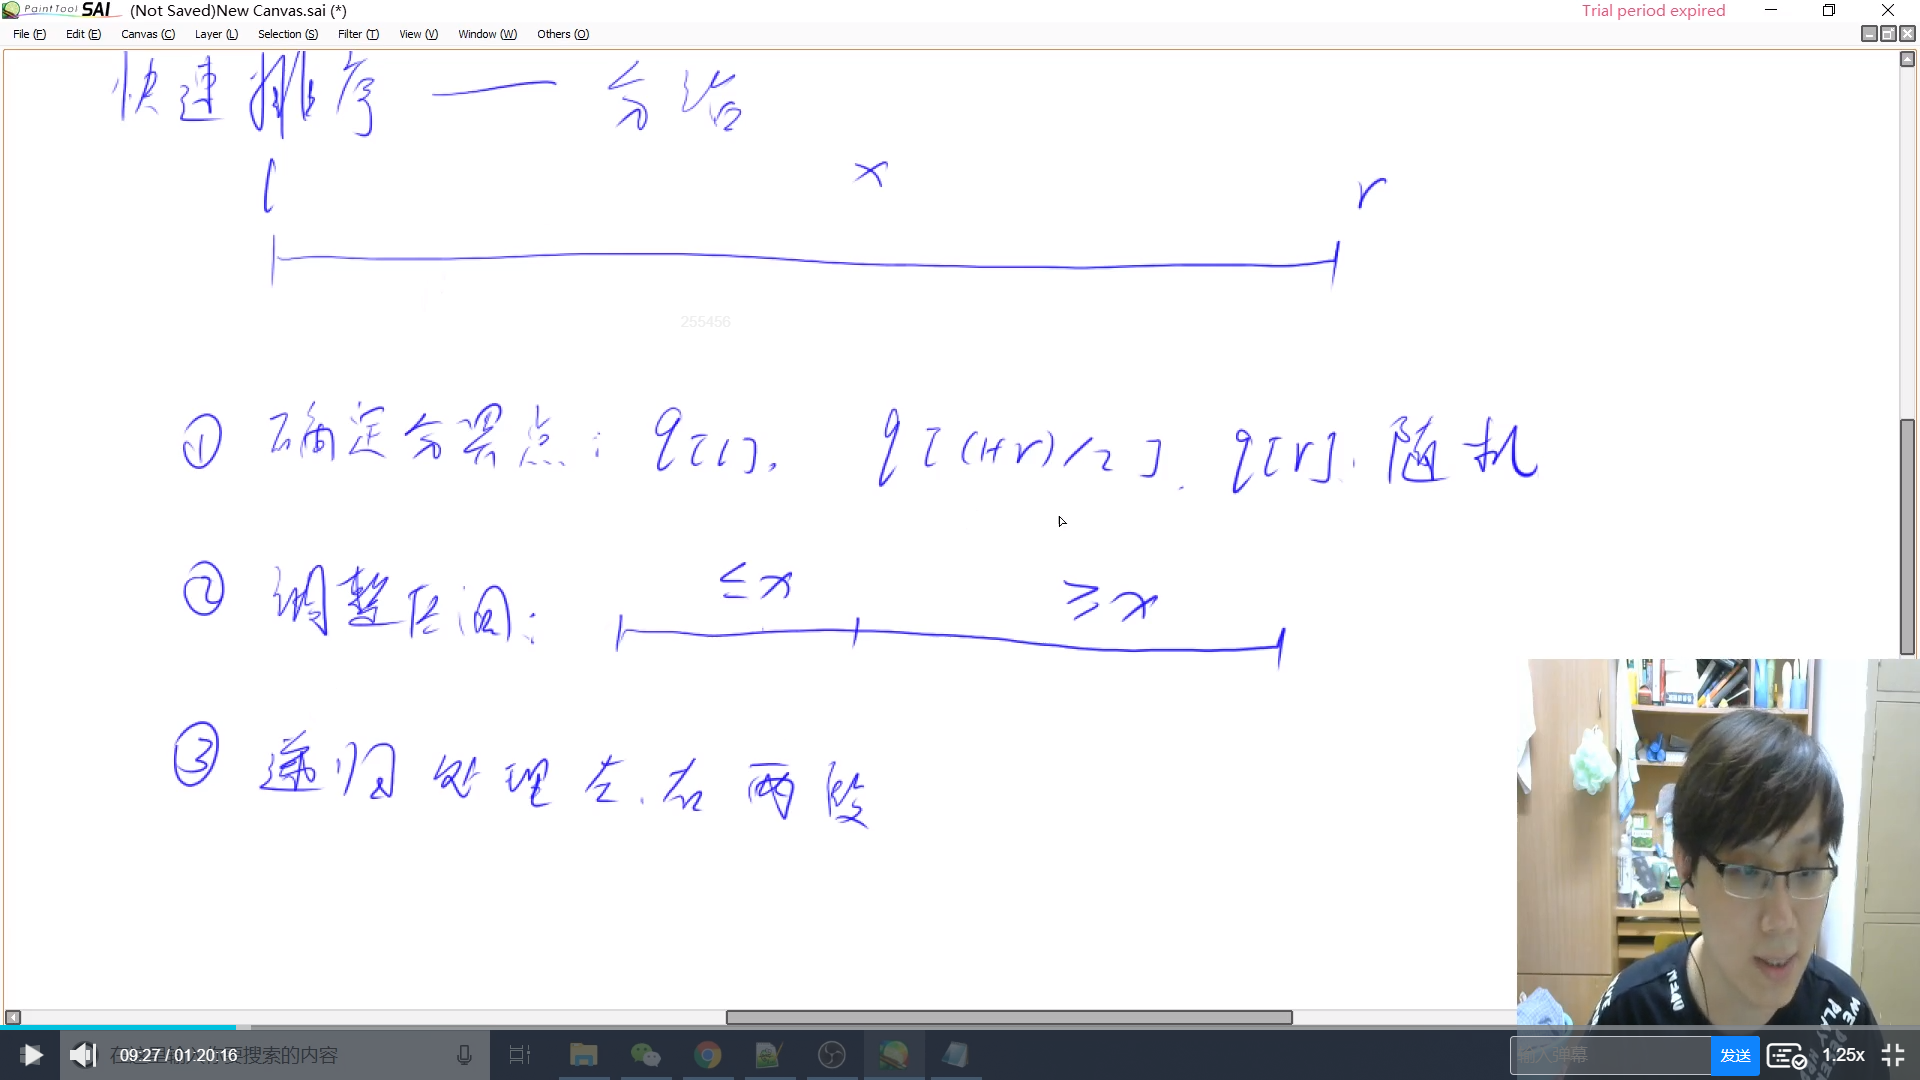 PaintTool SAI (Not Saved)New Canvas.sai (*) Trial period expired
File (F) Edit (E) Canvas (C) Layer (L) Selection (S) Filter (T) View (V) Window (W) Others (O)
快速排序 —— 分治
l x r
255456
① 确定分界点: q[l], q[(l+r)/2], q[r], 随机
② 调整区间: ≤x ≥x
③ 递归处理左、右两段
09:27 / 01:20:16 输入弹幕 发送 1.25x